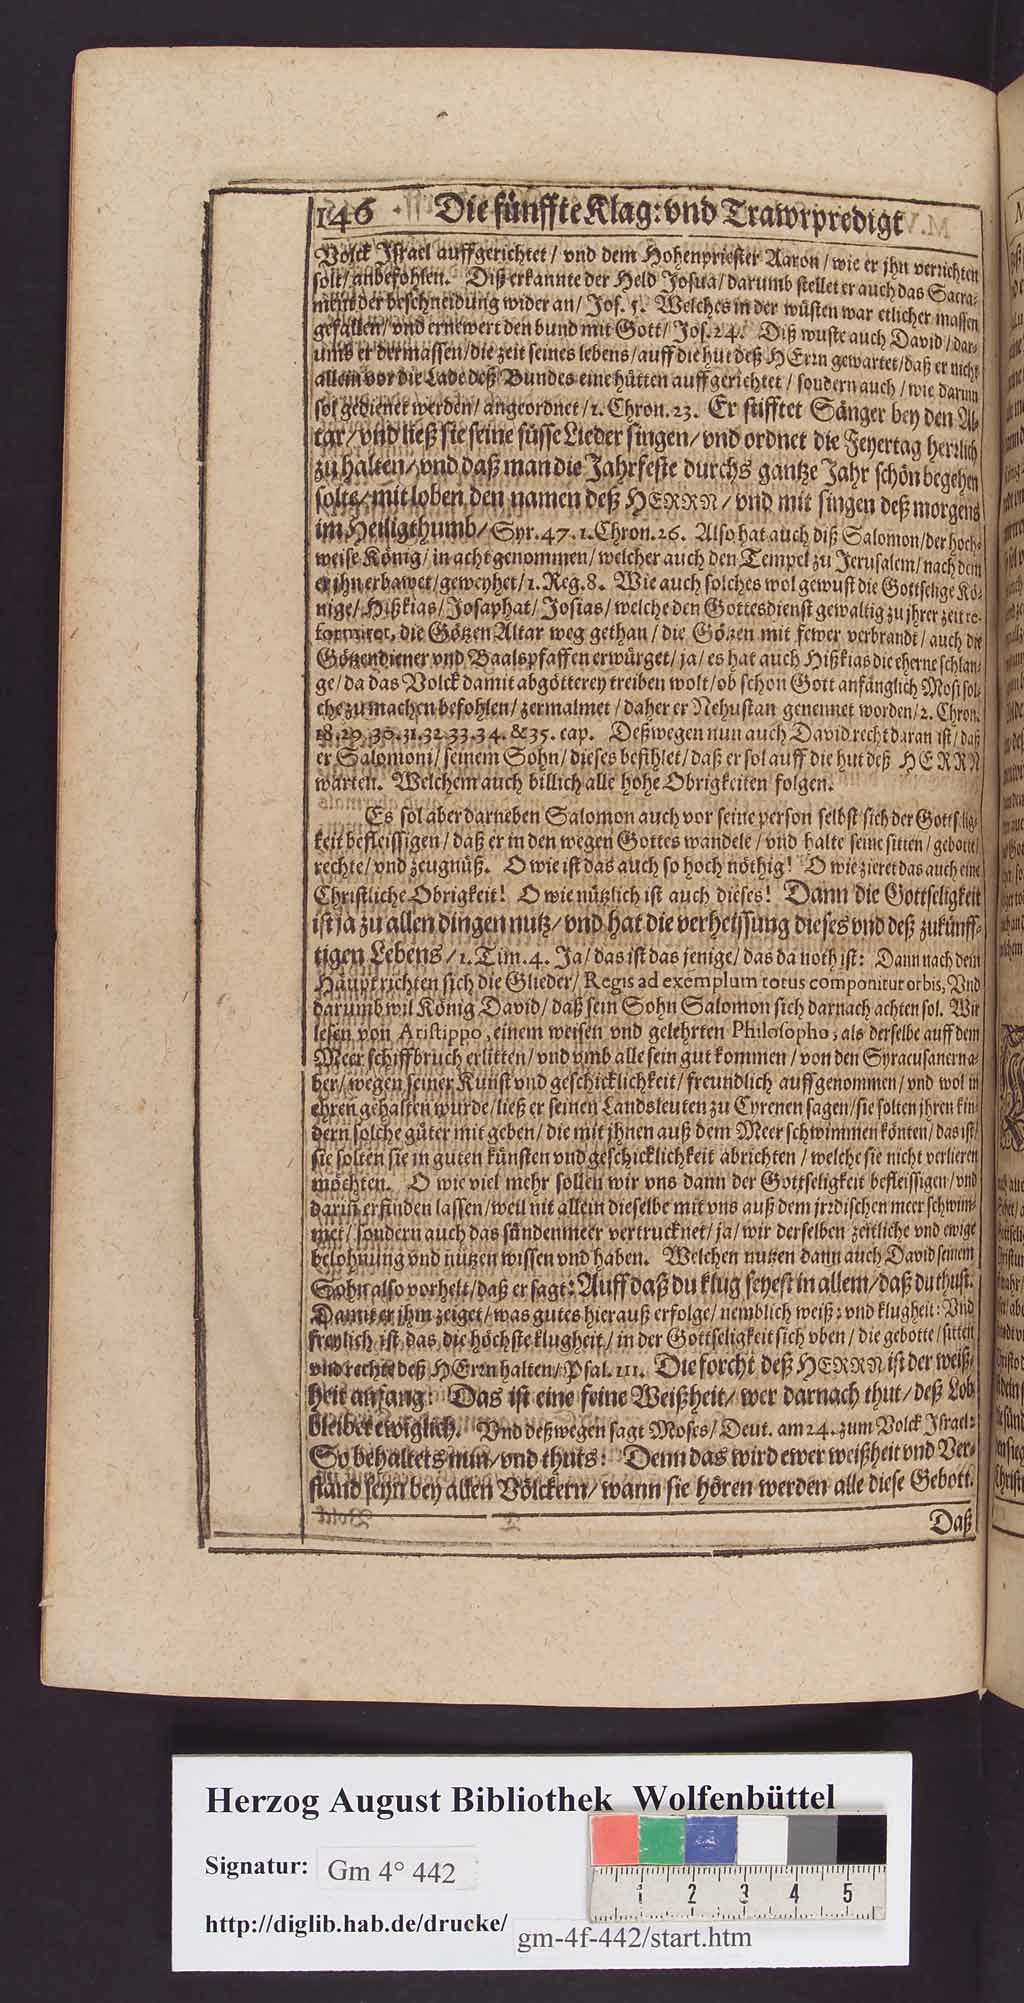 146 Die fünffte Klag: vnd Trawrpredigt
Volck Israel auffgerichtet / vnd dem Hohenpriester Aaron / wie er jhn verrichten
solt / anbefohlen. Diß erkannte der Held Josua / darumb stellet er auch das Sacra-
ment der beschneidung wider an / Jos. 5. Welches in der wüsten war etlicher massen
gefallen / vnd ernewert den bund mit Gott / Jos. 24. Diß wuste auch David / dar-
umb er dermassen / die zeit seines lebens / auff die hut deß HErrn gewartet / daß er nicht
allein vor die Lade deß Bundes eine hütten auffgerichtet / sondern auch / wie darinn
sol gedienet werden / angeordnet / 1. Chron. 23. Er stifftet Sänger bey den Al-
tar / vnd ließ sie seine süsse Lieder singen / vnd ordnet die Feyertag herrlich
zu halten / vnd daß man die Jahrfeste durchs gantze Jahr schön begehen
solte / mit loben den namen deß HERRN / vnd mit singen deß morgens
im Heiligthumb / Syr. 47. 1. Chron. 26. Also hat auch diß Salomon / der hoch-
weise König / in acht genommen / welcher auch den Tempel zu Jerusalem / nach dem
er jhn erbawet / geweyhet / 1. Reg. 8. Wie auch solches wol gewust die Gottselige Kö-
nige / Hißkias / Josaphat / Josias / welche den Gottesdienst gewaltig zu jhrer zeit re-
formiret, die Götzen Altar weg gethan / die Götzen mit fewer verbrandt / auch die
Götzendiener vnd Baalspfaffen erwürget / ja / es hat auch Hißkias die eherne schlan-
ge / da das Volck damit abgötterey treiben wolt / ob schon Gott anfänglich Mosi sol-
che zu machen befohlen / zermalmet / daher er Nehustan genennet worden / 2. Chron.
18. 29. 30. 31. 32. 33. 34. & 35. cap. Deßwegen nun auch David recht daran ist / daß
er Salomoni / seinem Sohn / dieses befihlet / daß er sol auff die hut deß HERRN
warten. Welchem auch billich alle hohe Obrigkeiten folgen.
Es sol aber darneben Salomon auch vor seine person selbst sich der Gottselig-
keit befleissigen / daß er in den wegen Gottes wandele / vnd halte seine sitten / gebott /
rechte / vnd zeugnüß. O wie ist das auch so hoch nöthig! O wie zieret das auch eine
Christliche Obrigkeit! O wie nützlich ist auch dieses! Dann die Gottseligkeit
ist ja zu allen dingen nutz / vnd hat die verheissung dieses vnd deß zukünff-
tigen Lebens / 1. Tim. 4. Ja / das ist das jenige / das da noth ist: Dann nach dem
Häupt richten sich die Glieder / Regis ad exemplum totus componitur orbis, Vnd
darumb wil König David / daß sein Sohn Salomon sich darnach achten sol. Wir
lesen von Aristippo, einem weisen vnd gelehrten Philosopho, als derselbe auff dem
Meer schiffbruch erlitten / vnd vmb alle sein gut kommen / von den Syracusanern a-
ber / wegen seiner Kunst vnd geschicklichkeit / freundlich auffgenommen / vnd wol in
ehren gehalten wurde / ließ er seinen Landsleuten zu Cyrenen sagen / sie solten jhren kin-
dern solche güter mit geben / die mit jhnen auß dem Meer schwimmen könten / das ist /
sie solten sie in guten künsten vnd geschicklichkeit abrichten / welche sie nicht verlieren
möchten. O wie viel mehr sollen wir vns dann der Gottseligkeit befleissigen / vnd
darin erfinden lassen / weil nit allein dieselbe mit vns auß dem jrrdischen meer schwim-
met / sondern auch das sündenmeer vertrucknet / ja / wir derselben zeitliche vnd ewige
belohnung vnd nutzen wissen vnd haben. Welchen nutzen dann auch David seinem
Sohn also vorhelt / daß er sagt: Auff daß du klug seyest in allem / daß du thust.
Damit er jhm zeiget / was gutes hierauß erfolge / nemblich weiß: vnd klugheit: Vnd
freylich ist das die höchste klugheit / in der Gottseligkeit sich vben / die gebotte / sitten
vnd rechte deß HErrn halten / Psal. 111. Die forcht deß HERRN ist der weiß-
heit anfang: Das ist eine feine Weißheit / wer darnach thut / deß Lob
bleibet ewiglich. Vnd deßwegen sagt Moses / Deut. am 24. zum Volck Israel:
So behaltets nun / vnd thuts: Denn das wird ewer weißheit vnd Ver-
stand seyn bey allen Völckern / wann sie hören werden alle diese Gebott.
Daß
Herzog August Bibliothek Wolfenbüttel
Signatur: Gm 4° 442
http://diglib.hab.de/drucke/ gm-4f-442/start.htm
1 2 3 4 5